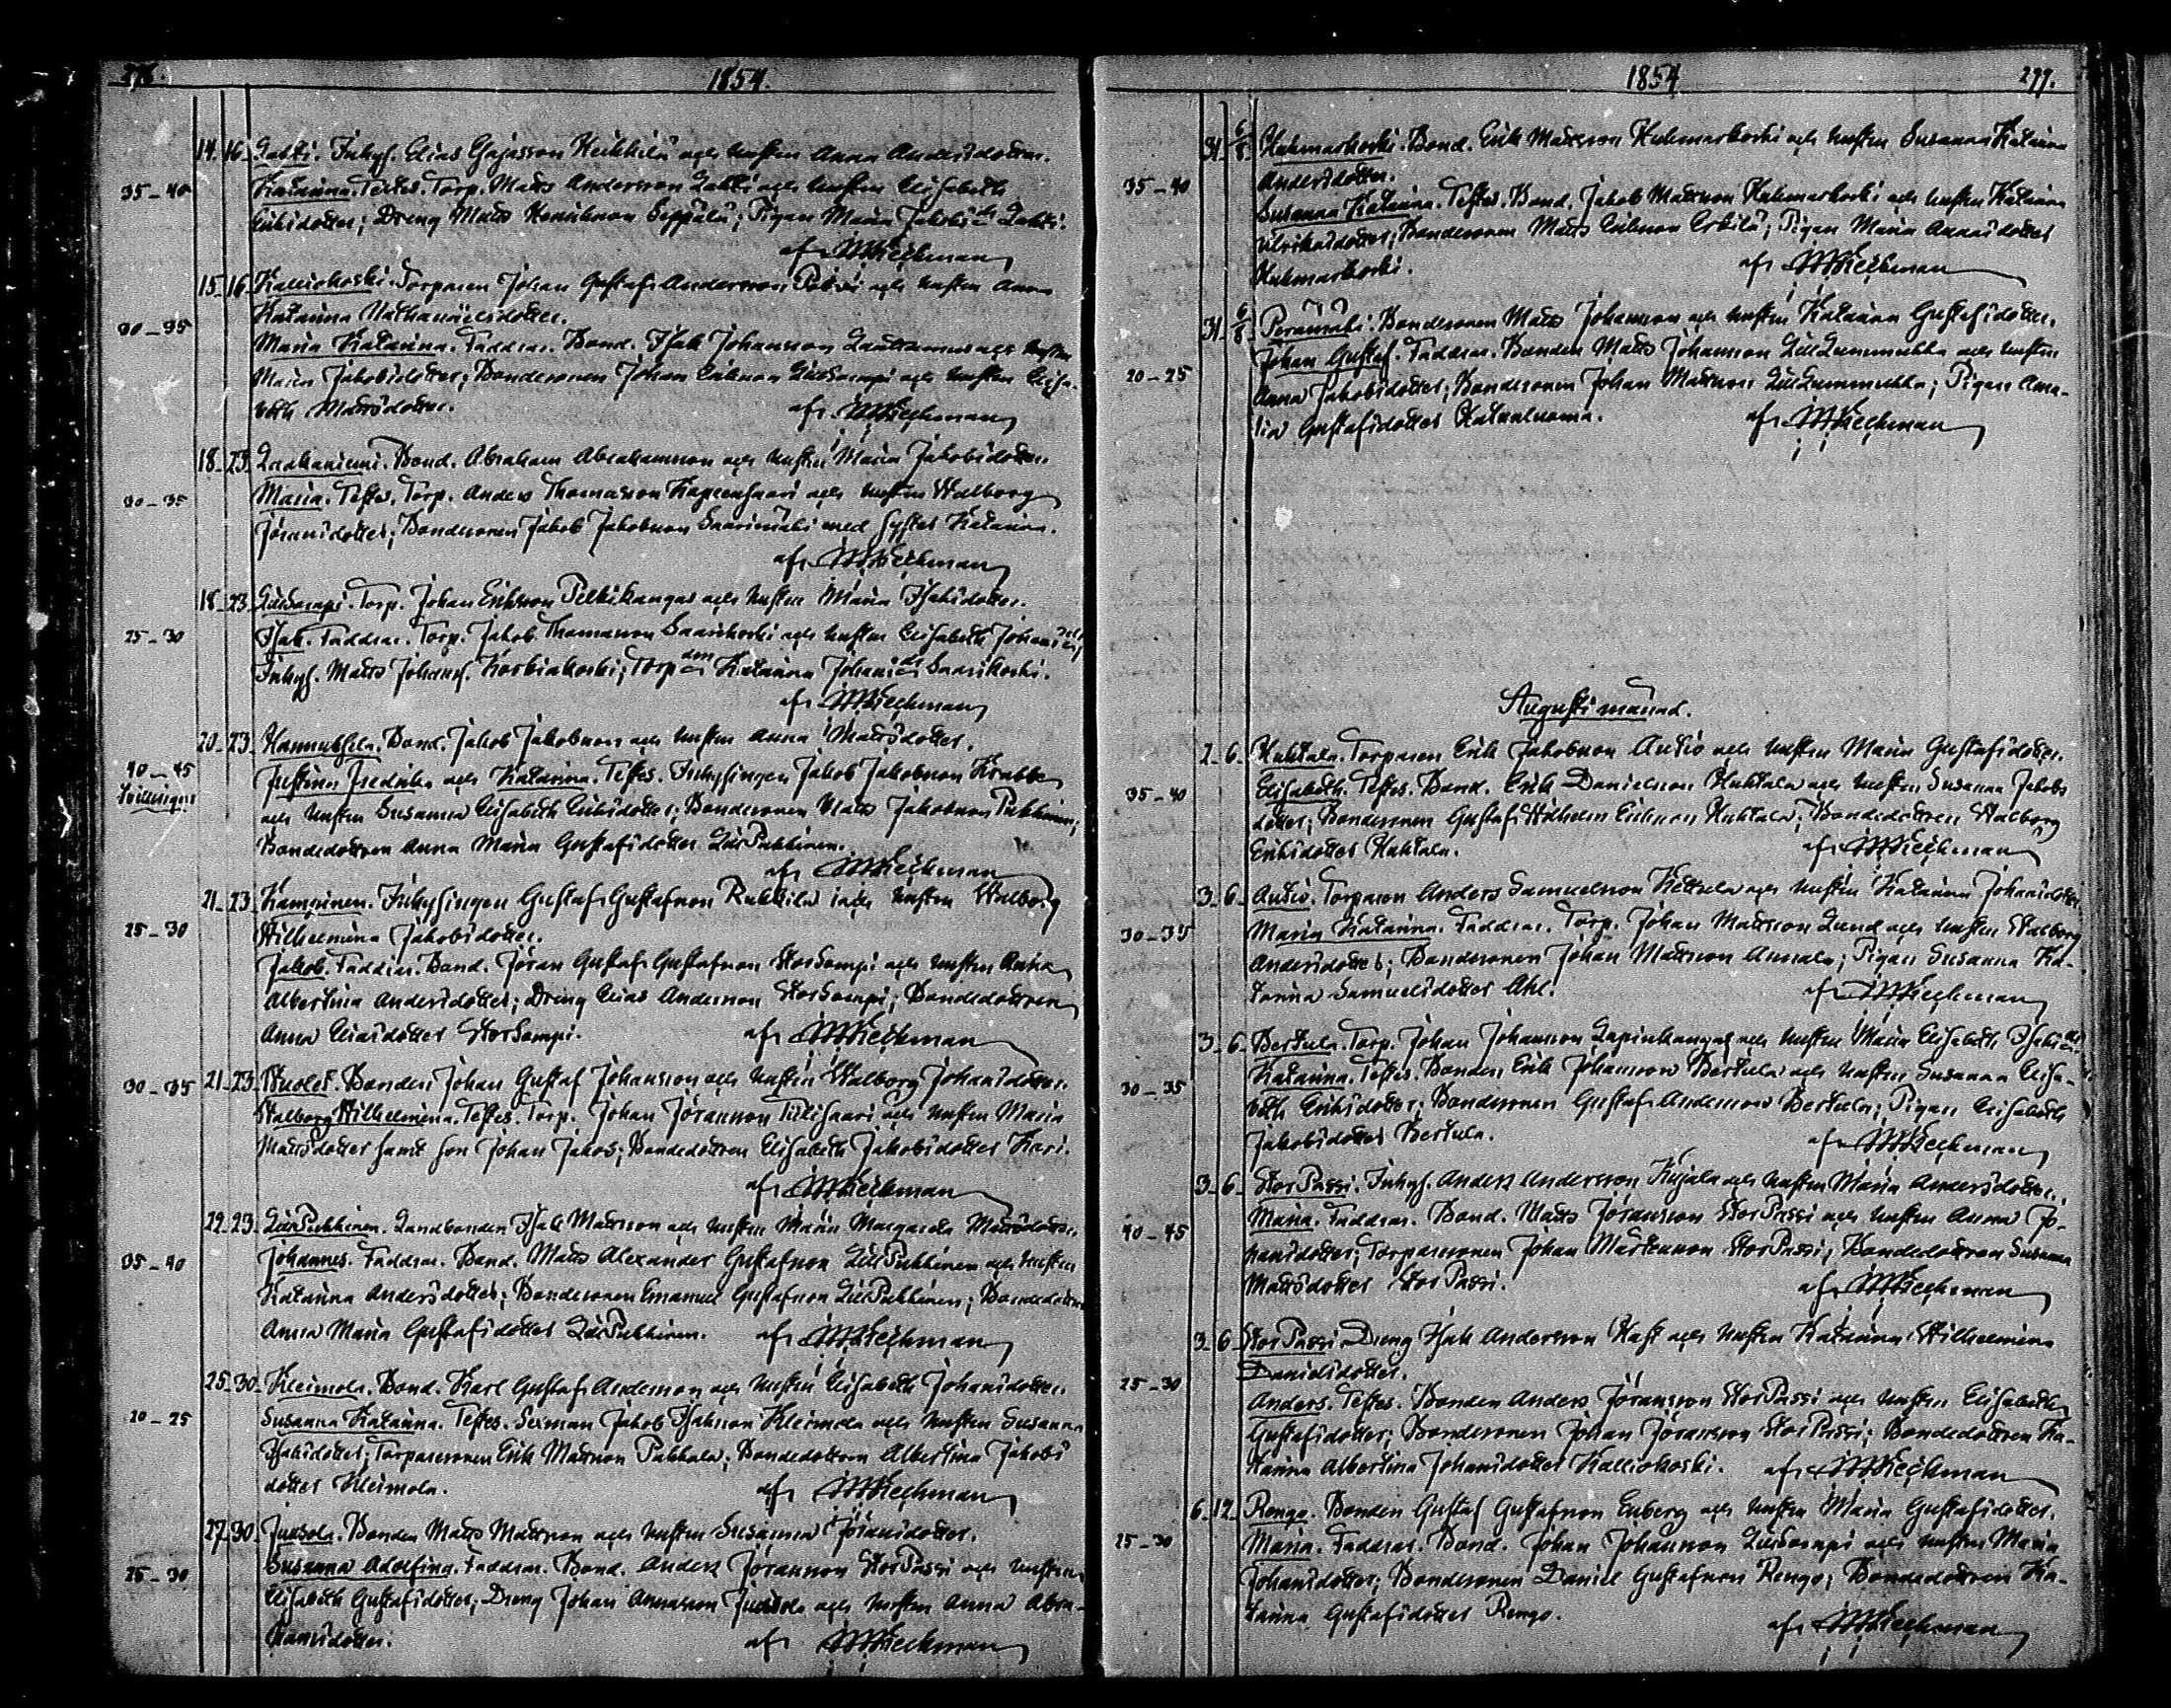 276.
1854.
14. 16. Lakki. Inhys. Elias Gajasson Heikkilä och hustru Anna Andersdotter.
35-40
Katarina. Testes. Torp. Matts Andersson Lakki och hustru Elisabeth
Eriksdotter; Dreng Matts Henriksson Seppälä; Pigan Maria Jakobs dr Lakki.
af MWiechman
15-16 Kalliokoski. Torparen Johan Gustaf Andersson och hustru Anna
30-35
Katarina Nathanaëlsdotter.
Maria Katarina. Faddrar. Bond. Isak Johansson och hustru
Maria Jakobsdotter; Bondesonen Johan Eriksson LillSompi och hustru Elisa-
beth Mattsdotter.
af MWiechman
18-23. Luokaniemi. Bond. Abraham Abrahamsson och hustru Maria Jakobsdotter.
30-35
Maria. Testes. Torp. Anders Thomasson och hustru Walborg
Jöransdotter; Bondesonen Jakob Jakobsson Saarimäki med syster Katarina.
af MWiechman
18-23. LillSompi. Torp. Johan Eriksson Pelkikangas och hustru Maria Isaksdotter.
25-30
Isak. Faddrar. Torp. Jakob Thomasson Saarikoski och hustru Elisabeth Johans dr;
Inhys. Matts Johans. Korkiakoski; Torp dra Katarina Johans dr Saarikoski.
af MWiechman
20-23. Hannuksela. Bond. Jakob Jakobsson och hustru Anna Mattsdotter.
40-45
tvillingar
Justina Fredrika och Katarina. Testes. Inhysingen Jakob Jakobsson Krabbe
och hustru Susanna Elisabeth Eriksdotter; Bondesonen Matts Jakobsson Pukkinen;
Bondedottren Anna Maria Gustafsdotter LillPukkinen.
af MWiechman
21-23. Kampinen. Inhysingen Gustaf Gustafsson Rukkila och hustru Walborg
25-30
Wilhelmina Jakobsdotter.
Jakob. Faddrar. Bond. Jöran Gustaf Gustafsson StorSompi och hustru Anna
Albertina Andersdotter; Dreng Elias Andersson StorSompi; Bondedottren
Anna Eliasdotter StorSompi.
af MWiechman
30-35
21-23. Wuolet. Bonden Johan Gustaf Johansson och hustru Walborg Johansdotter.
Walborg Wilhelmina. Testes. Torp. Johan Jöransson Tillisaari och hustru Maria
Mattsdotter samt son Johan Jakob; Bondedottren Elisabeth Jakobsdotter Kari.
af MWiechman
22-23. LillPukkinen. Landbonden Isak Mattsson och hustru Maria Margareta Mattsdotter.
35-40
Johannes. Faddrar. Bond. Matts Alexander Gustafsson LillPukkinen och hustru
Katarina Andersdotter; Bondesonen Emanuel Gustafsson LillPukkinen; Bondedottren
Anna Maria Gustafsdotter LillPukkinen.
af MWiechman
25-30. Kleimola. Bond. Karl Gustaf Andersson och hustru Elisabeth Johansdotter.
20-25
Susanna Katarina. Testes. Sexman Jakob Isaksson Kleimola och hustru Susanna
Isaksdotter; Torparesonen Erik Mattsson Pukkala; Bondedottren Albertina Jakobs
dotter Kleimola.
af MWiechman
27-30. Juusola. Bonden Matts Mattsson och hustru Susanna Jöransdotter.
25-30
Susanna Adolfina. Faddrar. Bond. Anders Jöransson StorPassi och hustru
Elisabeth Gustafsdotter; Dreng Johan Annasson Juusola och hustru Anna Abra-
hamsdotter.
af MWiechman
1854
277.
31. 6/8 Huhmarkoski. Bond. Erik Mattsson Huhmarkoski och hustru Susanna Katarina
35-40
Andersdotter.
Susanna Katarina. Testes. Bond. Jakob Mattsson Huhmarkoski och hustru Katarina
Ulrikasdotter; Bondesonen Matts Eriksson Erkilä; Pigan Maria Annasdotter
Huhmarkoski.
af MWiechman
31. 6/8 Perämäki. Bondesonen Matts Johansson och hustru Katarina Gustafsdotter.
20-25
Johan Gustaf. Faddrar. Bonden Matts Johansson LillLummukka och hustru
Anna Jakobsdotter; Bondesonen Johan Mattsson LillLummukka; Pigan Ama-
lia Gustafsdotter Hakunluoma.
af MWiechman
Augusti månad.
2-6. Huhtala. Torparen Erik Jakobsson Autio och hustru Maria Gustafsdotter.
35-40
Elisabeth. Testes. Bond. Erik Danielsson Huhtala och hustru Susanna Jakobs
dotter; Bondesonen Gustaf Wilhelm Eriksson Huhtala; Bondedottren Walborg
Eriksdotter Huhtala.
af MWiechman
3-6. Autio. Torparen Anders Samuelsson Kettula och hustru Katarina Johansdotter.
30-35
Maria Katarina. Faddrar. Torp. Johan Mattsson Lund och hustru Walborg
Andersdotter; Bondesonen Johan Mattsson Annala; Pigan Susanna Ka-
tarina Samuelsdotter Ahl.
af MWiechman
3-6. Bertula. Torp. Johan Johansson Lapinkangas och hustru Maria Elisabeth Isaks dr.
30-35
Katarina. Testes. Bonden Erik Johansson Bertula och hustru Susanna Elisa-
beth Eriksdotter; Bondesonen Gustaf Andersson Bertula; Pigan Elisabeth
Jakobsdotter Bertula.
af MWiechman
3-6. StorPassi. Inhys. Anders Andersson Kujala och hustru Maria Andersdotter.
40-45
Maria. Faddrar. Bond. Matts Jöransson StorPassi och hustru Anna Jo-
hansdotter; Torparesonen Johan Mårtensson StorPassi; Bondedottren Susanna
Mattsdotter StorPassi.
af MWiechman
3-6. StorPassi. Dreng Isak Andersson Hast och hustru Katarina Wilhelmina
Danielsdotter.
25-30
Anders. Testes. Bonden Anders Jöransson StorPassi och hustru Elisabeth
Gustafsdotter; Bondesonen Johan Jöransson StorPassi; Bondedottren Ka-
tarina Albertina Johansdotter Kalliokoski.
af MWiechman
6-12. Rengo. Bonden Gustaf Gustafsson Enberg och hustru Maria Gustafsdotter.
25-30
Maria. Faddrar. Bond. Johan Johansson LillSompi och hustru Maria
Johansdotter; Bondesonen Daniel Gustafsson Rengo; Bondedottren Ka-
tarina Gustafsdotter Rengo.
af MWiechman